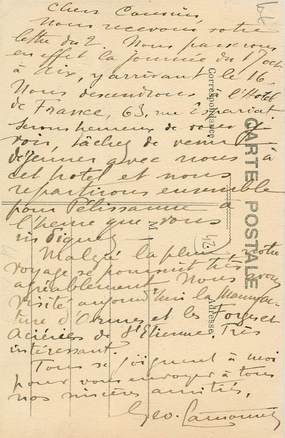 Chers Cousins,
Nous recevons votre
lettre du 2. Nous passerons
en effet la journée du 17 oct
à Aix, y arrivant le 16.
Nous descendrons à l'Hôtel
de France, 63, rue Espariat
serons heureux de vous
voir, tâchez de venir
déjeuner avec nous à
cet hôtel et nous
repartirons ensemble
pour Pélissanne à
l'heure que vous
indiquez.
Malgré la pluie, notre
voyage se poursuit très
agréablement. Nous avons
visité aujourd'hui la Manufac
ture d'Armes et les Forges et
Aciéries de St Etienne. Très
intéressant.
Tous se joignent à moi
pour vous envoyer à tous
nos sincères amitiés,
Geo.
CARTE POSTALE
Correspondance
Adresse
M